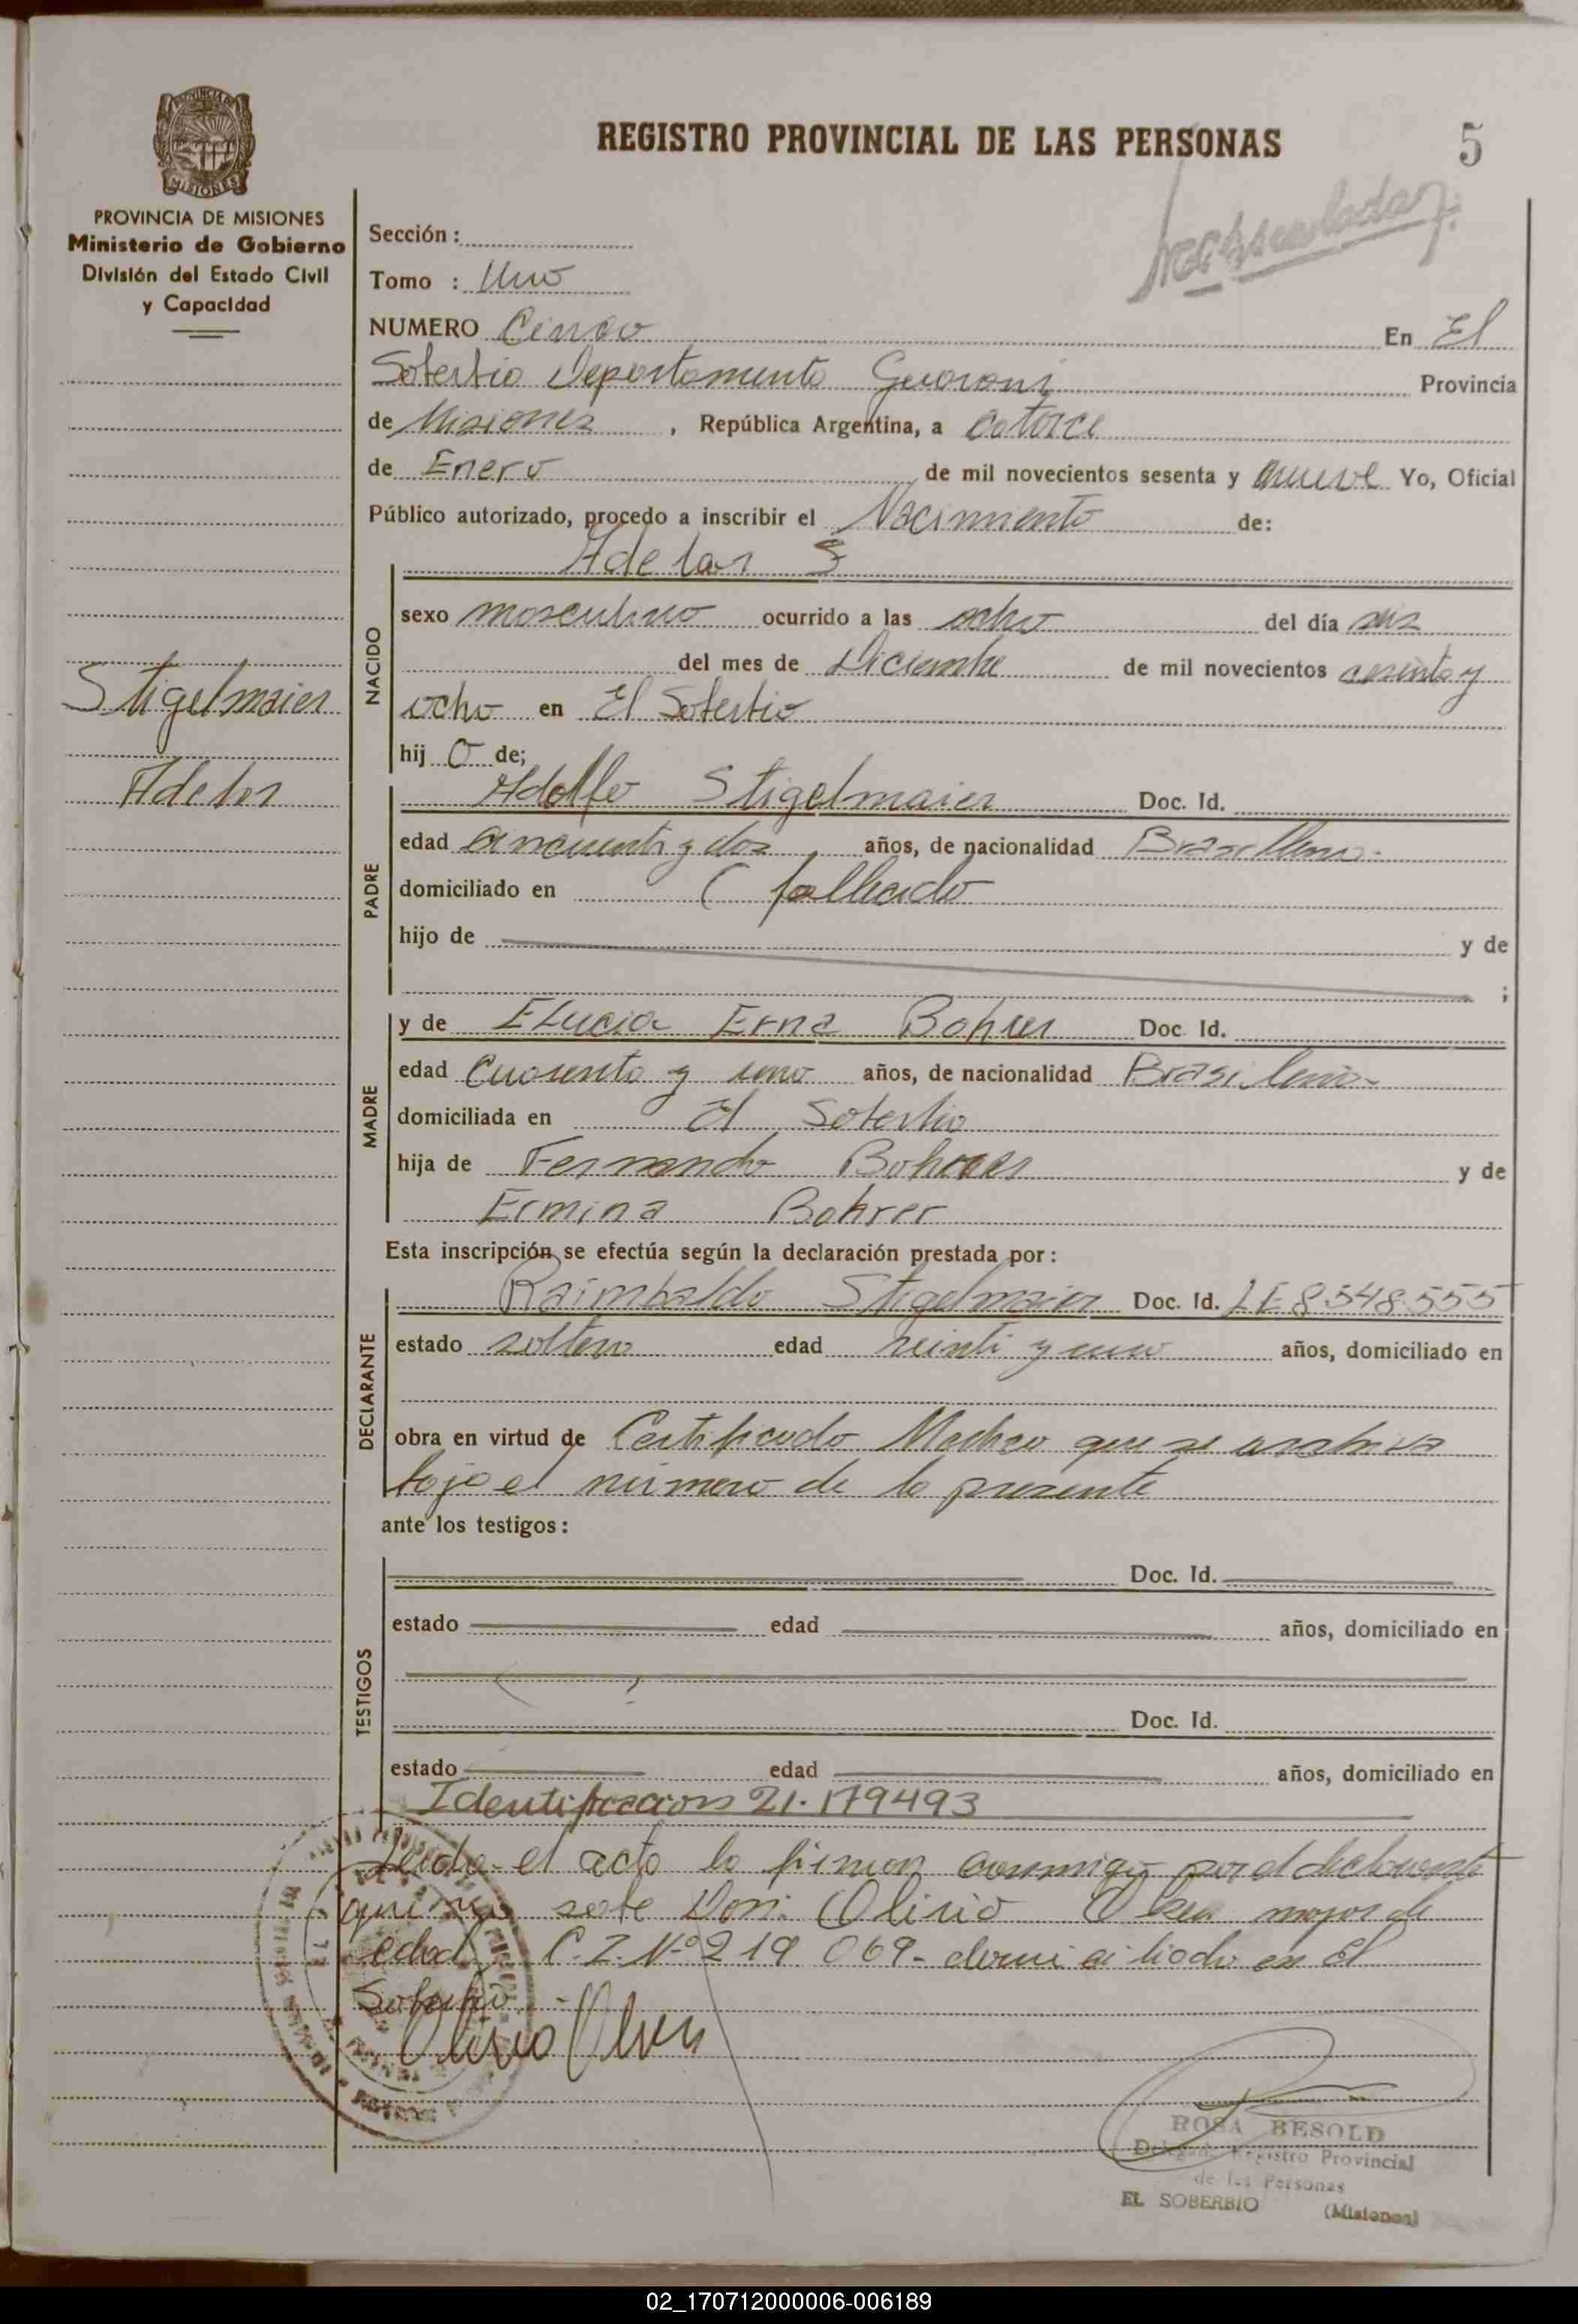 REGISTRO PROVINCIAL DE LAS PERSONAS
5
PROVINCIA DE MISIONES
Ministerio de Gobierno
División del Estado Civil
y Capacidad
Sección :
Tomo : Uno
NUMERO Cinco En El
Soberbio Departamento Guarani Provincia
de Misiones , República Argentina, a catorce
de Enero de mil novecientos sesenta y nueve Yo, Oficial
Público autorizado, procedo a inscribir el Nacimiento de:
Adelar S
NACIDO
sexo masculino ocurrido a las ocho del día seis
del mes de Diciembre de mil novecientos sesenta y
ocho en El Soberbio
hij o de;
Stigelmaier
Adelar
PADRE
Adolfo Stigelmaier Doc. Id.
edad cincuenta y dos años, de nacionalidad Brasilero.
domiciliado en ( fallecido
hijo de y de
;
MADRE
y de Elucia Erna Bohrer Doc. Id.
edad Cuarenta y uno años, de nacionalidad Brasilera
domiciliada en El Soberbio
hija de Fernando Bohrer y de
Ermina Bohrer
Esta inscripción se efectúa según la declaración prestada por :
DECLARANTE
Raimbaldo Stigelmaier Doc. Id. LE 8548555
estado soltero edad veinti y uno años, domiciliado en
obra en virtud de Certificado Medico que se archiva
bajo el número de la presente
ante los testigos :
TESTIGOS
Doc. Id.
estado edad años, domiciliado en
Doc. Id.
estado edad años, domiciliado en
Identificacion 21.179493
Leida el acta la firman conmigo por el declarante
que no sabe Don: Olirio Olsen mayor de
edad C.I. Nº 219 069- domiciliado en El
Soberbio.-
ROSA BESOLD
Delegada Registro Provincial
de las Personas
EL SOBERBIO (Misiones)
02_170712000006-006189